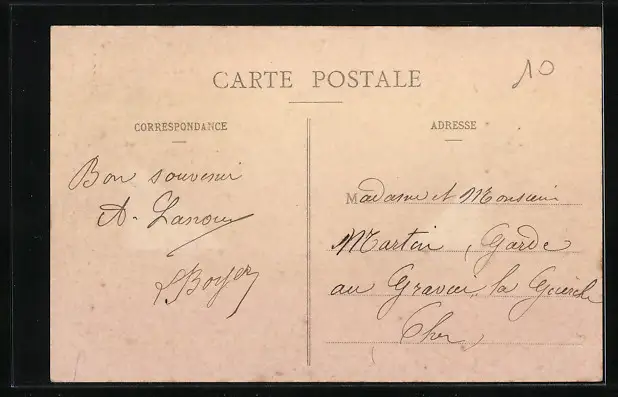 CARTE POSTALE
10
CORRESPONDANCE
ADRESSE
Bon souvenir
A. Lanoux
Boyer
Madame et Monsieur
Martin, Garde
au Gravier, la Guerche
Cher